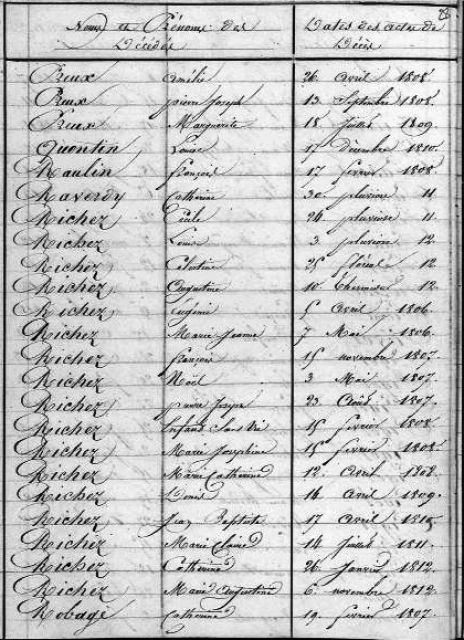 Noms et Prénoms des Décédés
Dates des actes de Décès
Preux Amélie 26 avril 1808
Preux pierre Joseph 13 Septembre 1808.
Preux Marguerite 18 Juillet 1809.
Quentin Louise 17 décembre 1810.
Raulin françois 17 février 1808
Raverdy Catherine 30 pluviose 11
Richez Cécile 24 pluviose 11.
Richez Louise 3 pluviose 12.
Richez Célestine 25 floréal 12
Richez Augustine 10 thermidor 12.
Richez Eugénie 5 avril 1806.
Richez Marie Jeanne 7 Mai 1806.
Richez françois 15 novembre 1807.
Richez Noël 3 Mai 1807.
Richez pierre Joseph 23 Août 1807.
Richez Enfant Sans Vie 15 février 1808
Richez Marie Joséphine 15 février 1808.
Richez Marie Catherine 12 avril 1808.
Richez Denis 16 avril 1809.
Richez Jean Baptiste 17 avril
Richez Marie Claire 14 Juillet 1811.
Richez Catherine 26 Janvier 1812.
Richez Marie Augustine 6 novembre 1812.
Robage Catherine 19 février 1807.